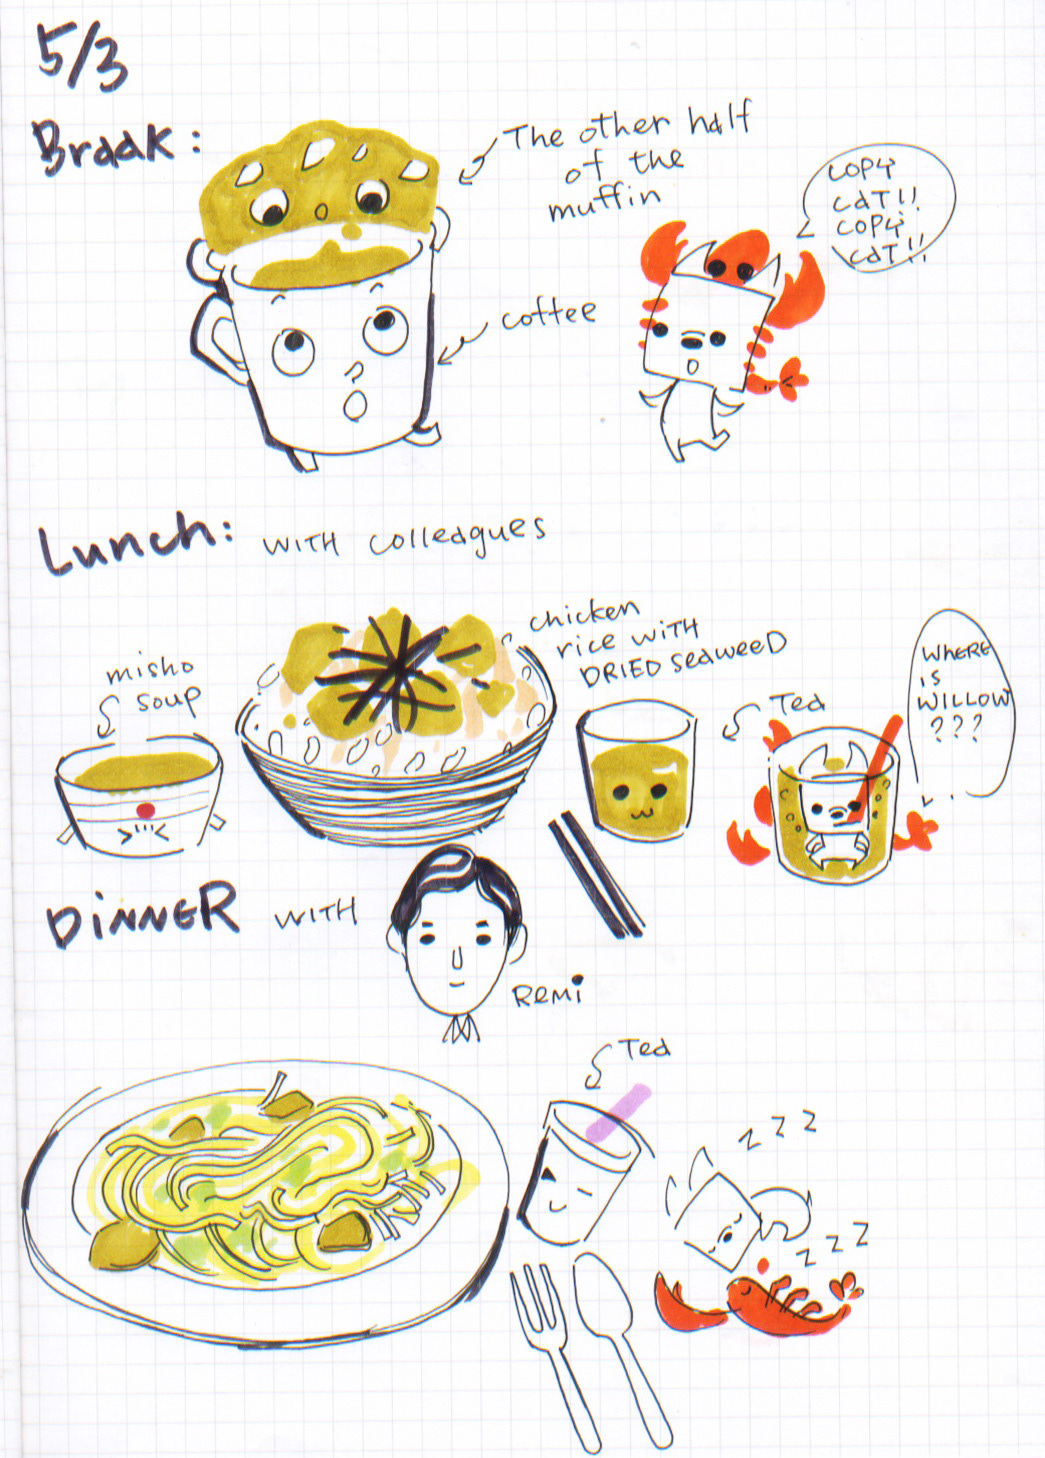 5/3
Braak:
The other half
of the
muffin
coffee
copy
cat!!
copy
cat!!
Lunch: with colleagues
misho
soup
chicken
rice with
DRIED seaweeD
Ted
WHERE
IS
WILLOW
???
DiNNER WITH
Remi
Ted
z z z
z z z